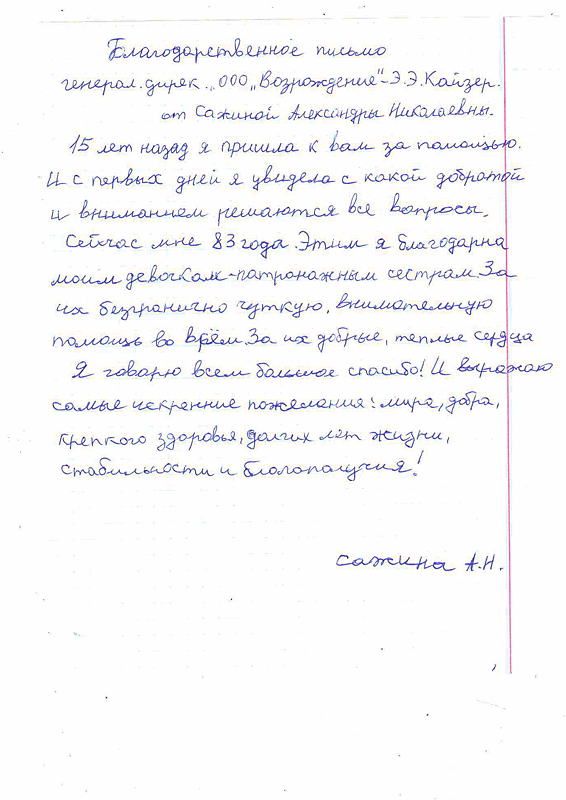 Благодарственное письмо
генерал.дирек.., ООО „Возрождение"-Э.Э.Кайзер.
от Сажиной Александры Николаевны.
15 лет назад я пришла к вам за помощью.
И с первых дней я увидела с какой добратой
и вниманием решаются все вопросы.
Сейчас мне 83 года. Этим я благодарна
моим девочкам-патронажным сестрам. За
их безгранично чуткую, внимательную
помощь во врём. За их добрые, теплые сердца
Я говарю всем большое спасибо! И выражаю
самые искренние пожелания: мира, добра,
крепкого здоровья, долгих лет жизни,
стабильности и блогополучия!
Сажина А.Н.